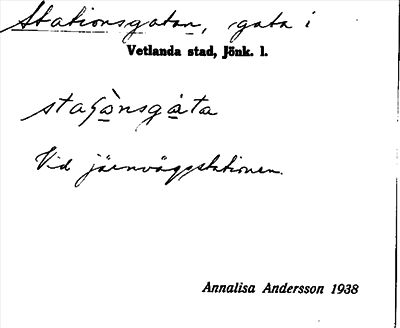 Stationsgatan, gata i
Vetlanda stad, Jönk. l.
staʃànsgata
Vid järnvägsstationen.
Annalisa Andersson 1938